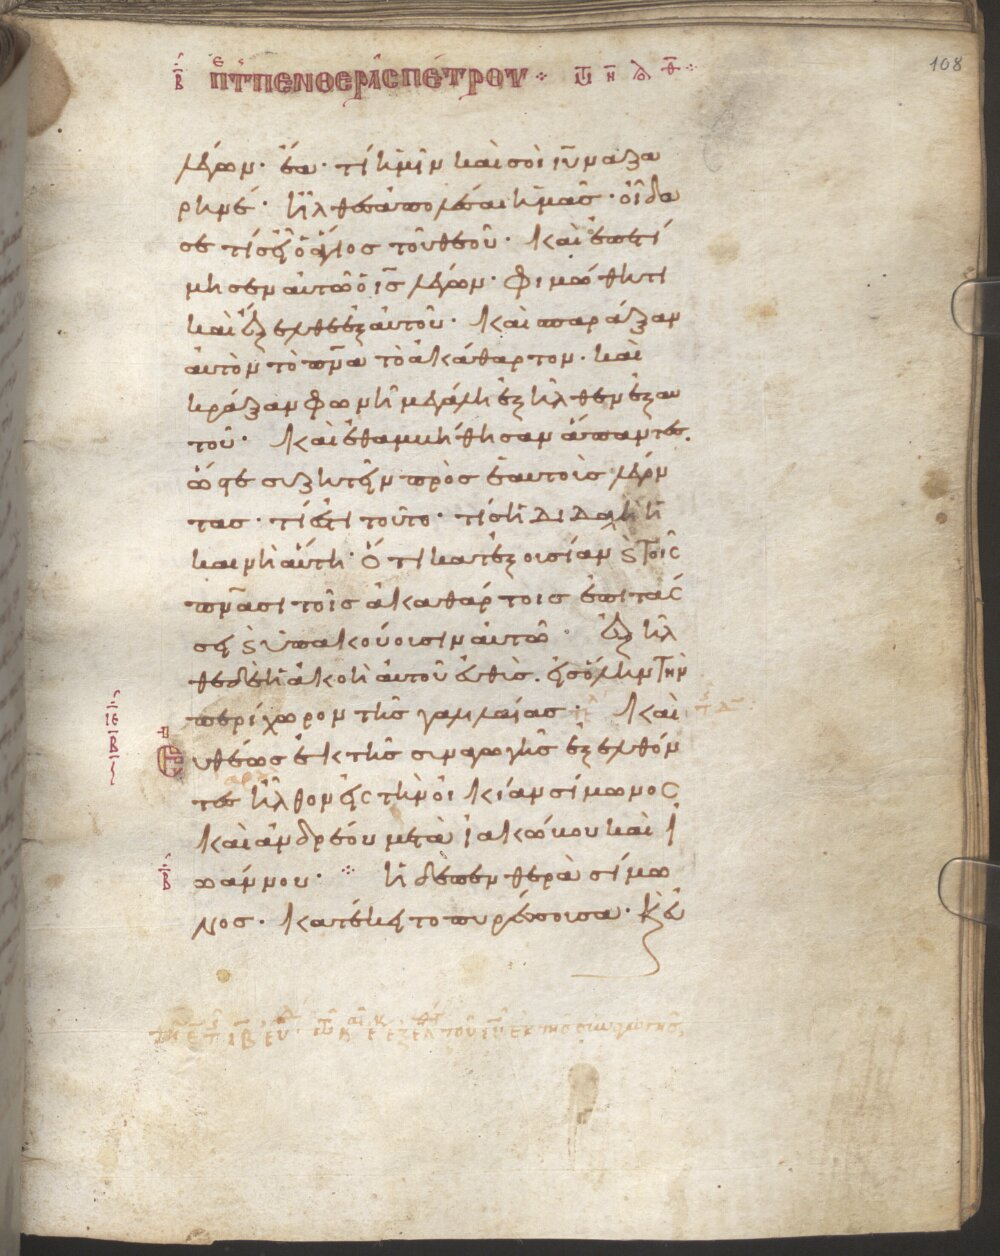 β περὶ τ(ῆς) πενθερᾶς πέτρου ⁘
108
λέγων· ἔα· τί ἡμῖν καὶ σοὶ ιῦ ναζα
ρηνέ· ἦλθες ἀπολέσαι ἡμᾶς· οἶδα
σε τίς εἶ ὁ ἅγιος τοῦ θεοῦ· καὶ ἐπετί
μησεν αὐτῶ ὁ ις λέγων· φιμώθητι
καὶ ἔξελθε ἐξ αὐτοῦ· καὶ σπαράξαν
αὐτὸν τὸ πνα τὸ ἀκάθαρτον. καὶ
κράξαν φωνῆ μεγάλη ἐξῆλθεν ἐξ αυ
τοῦ· καὶ ἐθαμβήθησαν ἅπαντες.
ὥστε συζητεῖν πρὸς ἑαυτοὺς λέγον
τας· τί ἐστι τοῦτο· τίς ἡ διδαχὴ ἡ
καινὴ αὕτη· ὅτι κατ ἐξουσίαν ϗ τοῖς
πνασι τοῖς ἀκαθάρτοις ἐπιτάσ
σει ϗ ὑπακούουσιν αὐτῶ· ἐξῆλ
θε δὲ ἡ ἀκοὴ αὐτοῦ εὐθὺς. εἰς ὅλην τὴν
περίχωρον τῆς γαλιλαίας· καὶ
εὐθέως ἐκ τῆς συναγωγῆς ἐξελθόν
τες ἦλθον εἰς τὴν οἰκίαν σίμωνος
καὶ ἀνδρέου μετὰ ἰακώβου καὶ ἰ
β ωάννου· ⁘ ἡ δὲ πενθερὰ σίμω
νος· κατέκειτο πυρέσσουσα· κὲ εὐ
τοῦ ιῦ ἐκ τῆς συναγωγῆς